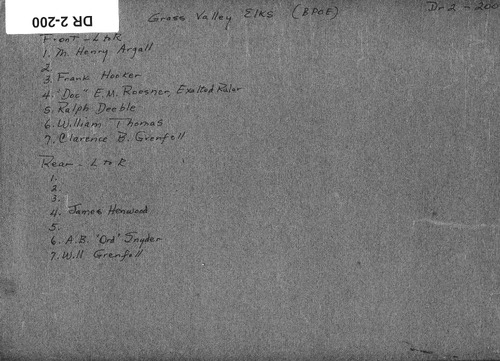 DR 2-200
Grass Valley Elks (BPOE)
Dr 2 - 200
Front - L to R
1. M. Henry Argall
2.
3. Frank Hooker
4. "Doc" E.M. Roesner, Exalted Ruler
5. Ralph Deeble
6. William Thomas
7. Clarence B. Grenfell
Rear - L to R
1.
2.
3.
4. James Henwood
5.
6. A.B. "Ord" Snyder
7. Will Grenfell